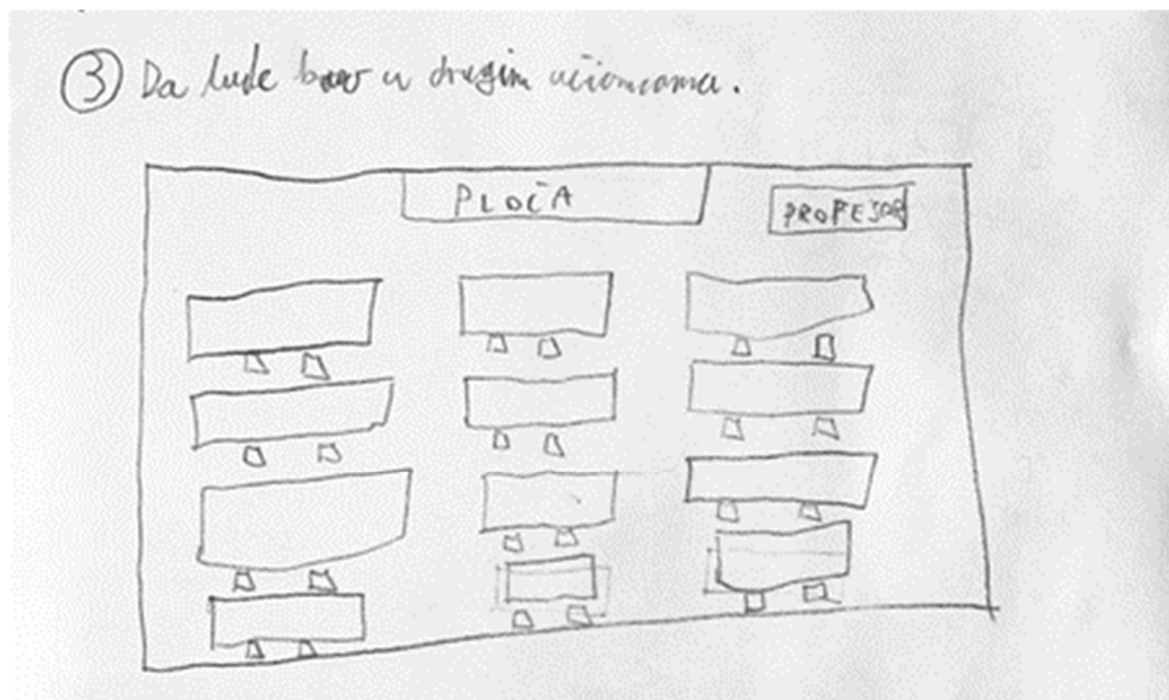 ③ Da bude kao u drugim učionicama.
PLOČA
PROFESOR